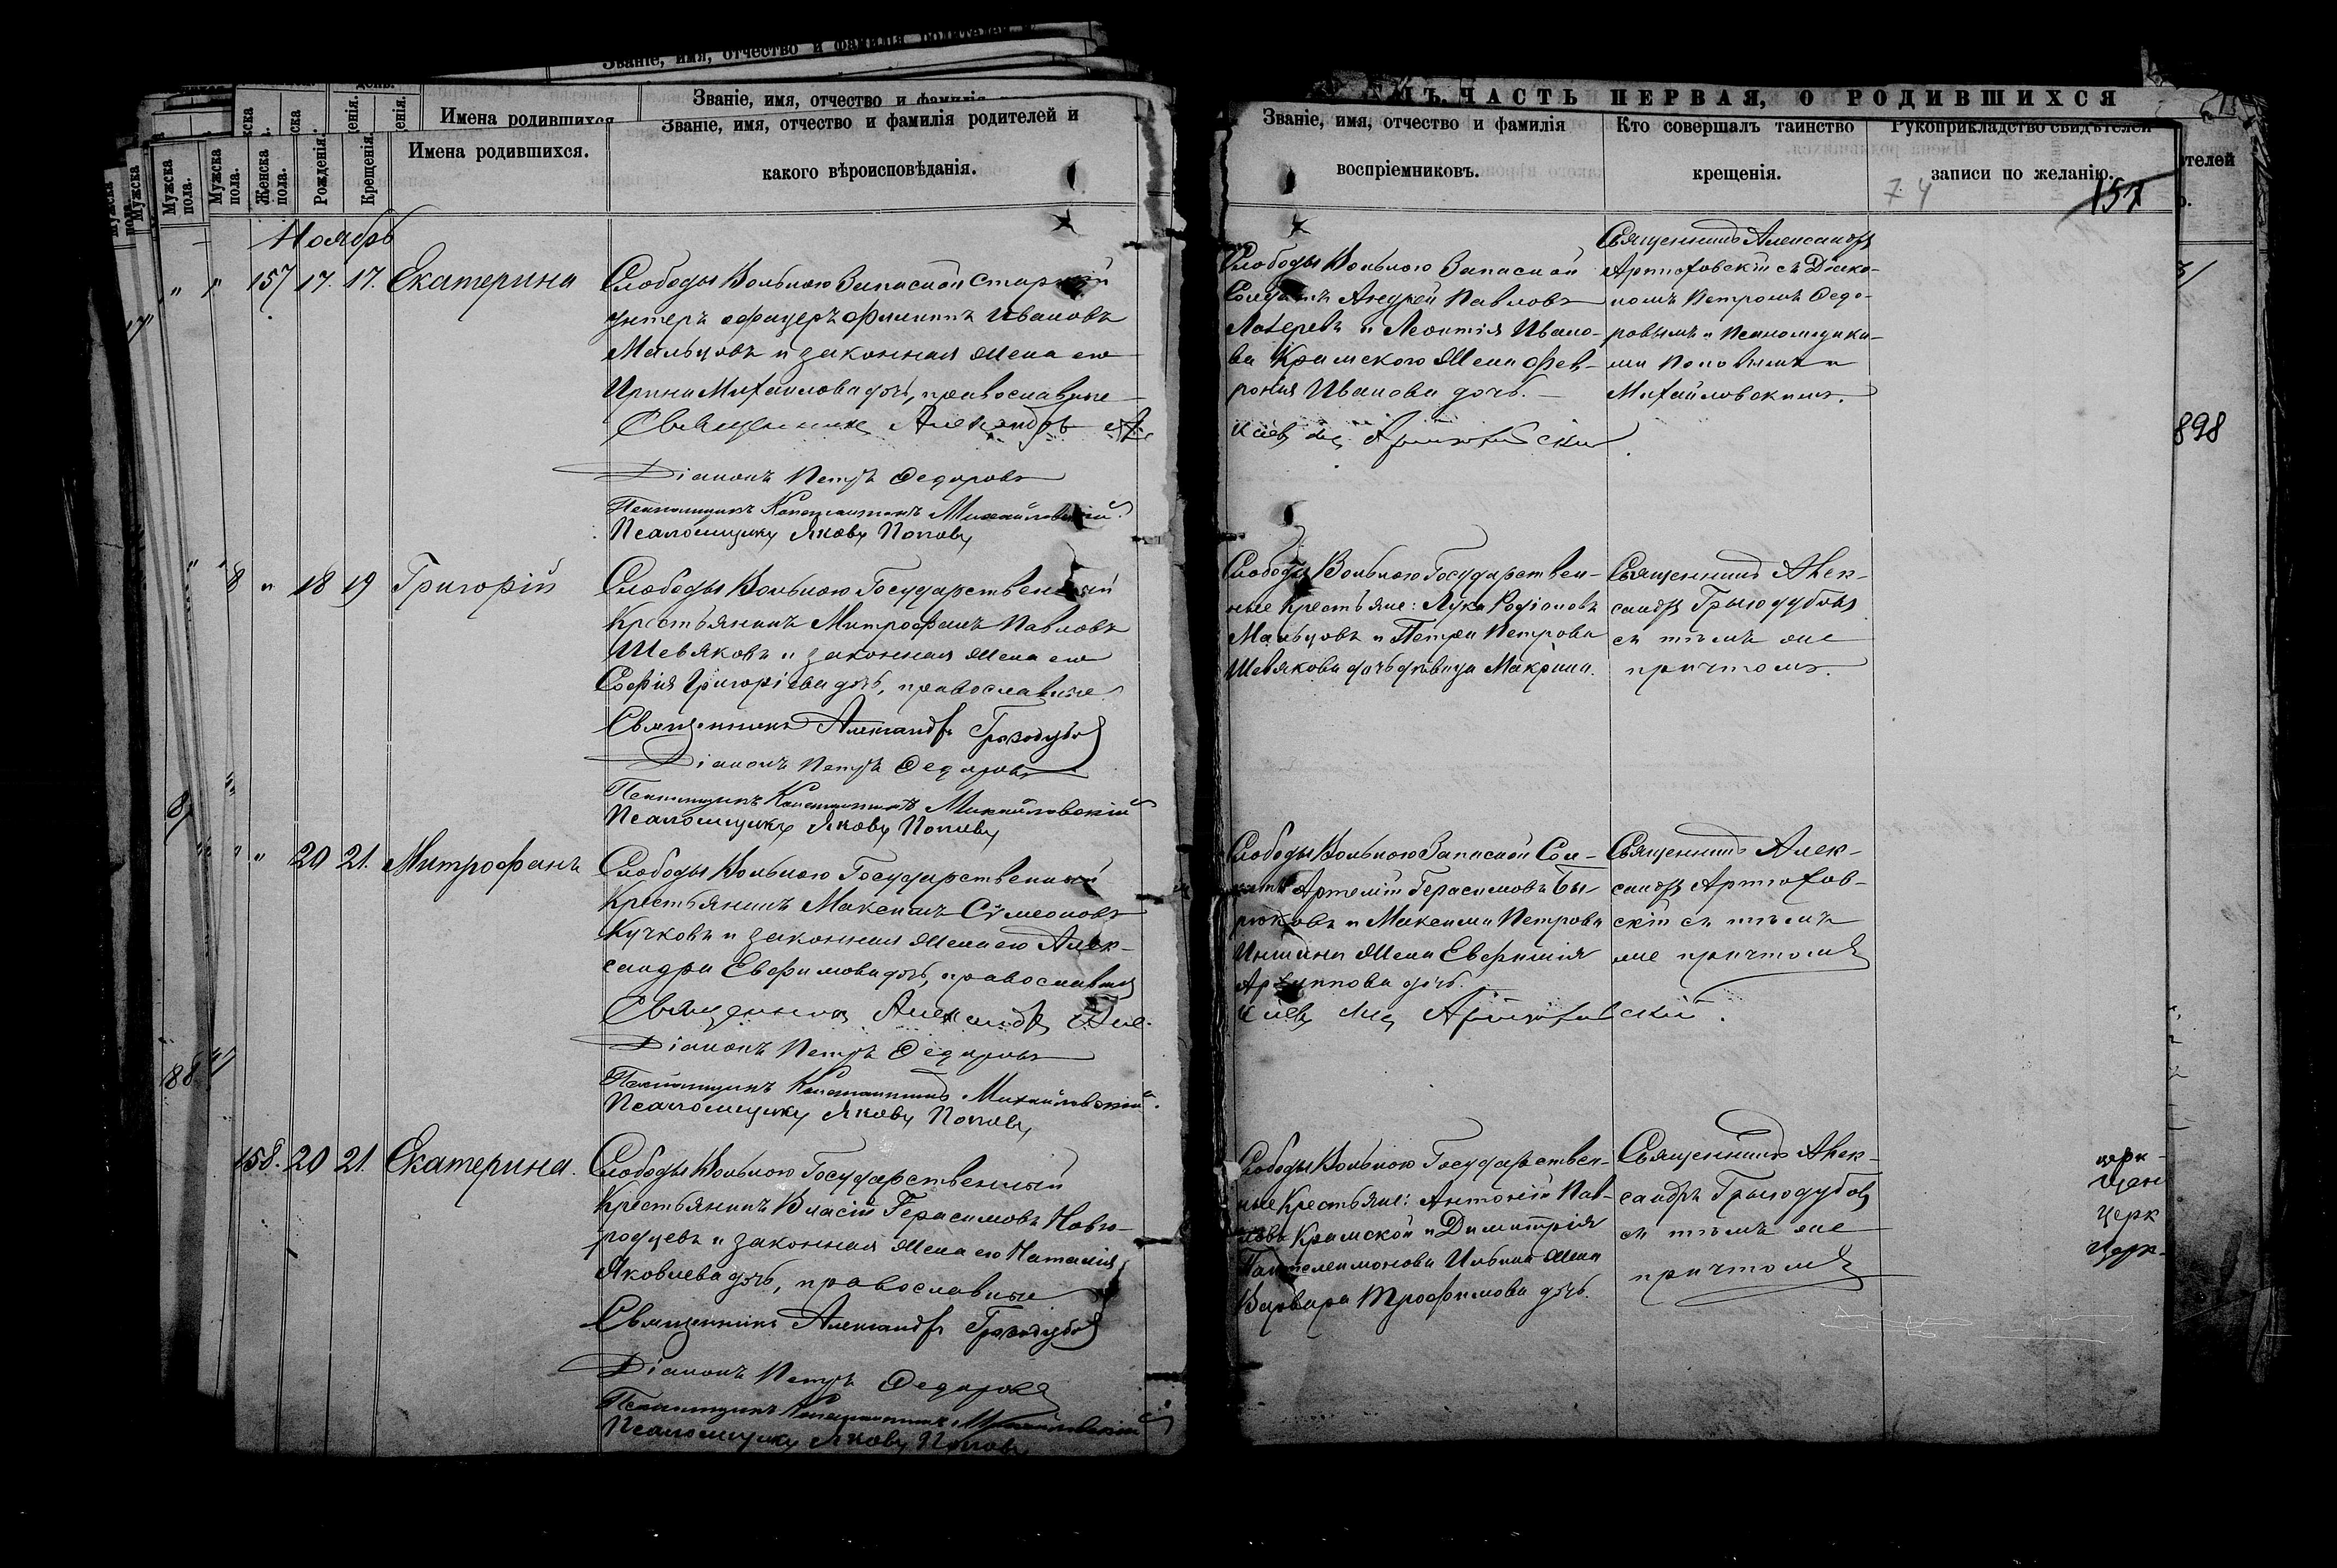 Званіе, имя, отчество и фамилія родителей и
Званіе, имя, отчество и фамилія
ЧАСТЬ ПЕРВАЯ, О РОДИВШИХСЯ
Имена родившихся
Мужска пола.
Женска пола.
Рожденія.
Крещенія.
Имена родившихся.
Званіе, имя, отчество и фамилія родителей и
какого вѣроисповѣданія.
Званіе, имя, отчество и фамилія
воспріемниковъ.
Кто совершалъ таинство
крещенія.
Рукоприкладство свидѣтелей
записи по желанію.
157
Ноябрь
157 17. 17. Екатерина
Слободы Вольной Запасной Старшій
унтеръ офицеръ Филиппъ Ивановъ
Мальцовъ и законная жена его
Ирина Михаилова дочь, православные
Священникъ Александръ
Діаконъ Петръ Федоровъ
Псаломщикъ Константинъ Михайловскій
Псаломщикъ Яковъ Поповъ
Слободы Вольной Запасной
Солдатъ Андрей Павловъ
и Леонтія Ивано-
ва Крамского жена Фев-
рония Иванова дочь.
Священникъ Александръ
Артюховскій съ Діако-
номъ Петромъ Федо-
ровымъ и Псаломщика-
ми Поповымъ и
Михайловскимъ.
8 " 18 19 Григорій
Слободы Вольной Государственный
Крестьянинъ Митрофанъ Павловъ
Шевяковъ и законная жена его
Софія Григоріева дочь, православные
Священникъ Александръ Грызодубовъ
Діаконъ Петръ Федоровъ
Псаломщикъ Константинъ Михайловскій
Псаломщикъ Яковъ Поповъ
Слободы Вольной Государствен-
ные Крестьяне: Лука Родіоновъ
Мальцовъ и Петра Петрова
Шевякова дочь девица Макрина.
Священникъ Алек-
сандръ Грызодубовъ
съ тѣмъ же
причтомъ.
" 20 21. Митрофанъ
Слободы Вольной Государственный
Крестьянинъ Максимъ Симеоновъ
Кучковъ и законная жена его Алек-
сандра Евфимова дочь, православные
Священникъ Александръ
Діаконъ Петръ Федоровъ
Псаломщикъ Константинъ Михайловскій
Псаломщикъ Яковъ Поповъ
Слободы Вольной Запасной Сол-
датъ Артемій Герасимовъ Би-
рюковъ и Максима Петрова
жена Евфимія
Архиппова дочь.
Священникъ Алек-
сандръ Артюхов-
скій съ тѣмъ
же причтомъ
158. 20 21. Екатерина.
Слободы Вольной Государственный
Крестьянинъ Власій Герасимовъ Навго-
родцевъ и законная жена его Наталія
Яковлева дочь, православные
Священникъ Александръ Грызодубовъ
Діаконъ Петръ Федоровъ
Псаломщикъ Константинъ Михайловскій
Псаломщикъ Яковъ Поповъ
Слободы Вольной Государствен-
ные Крестьяне: Антоній Пав-
ловъ Крамской и Димитрія
Пантелеимонова Ильина жена
Варвара Трофимова дочь.
Священникъ Алек-
сандръ Грызодубовъ
съ тѣмъ же
причтомъ
898